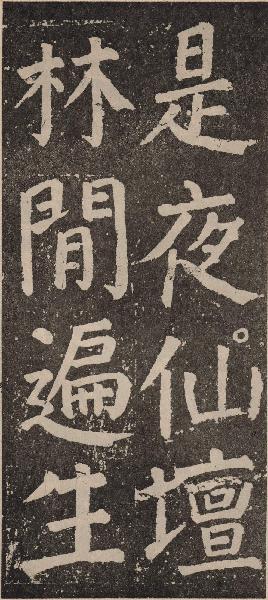 是夜仙壇
林間遍生